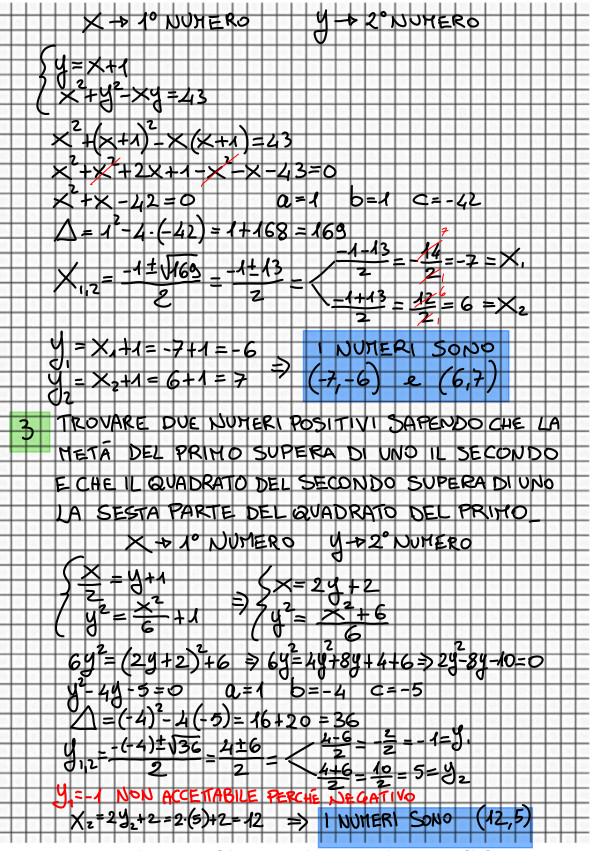 X → 1° NUMERO y → 2° NUMERO
{ y = x+1
x²+y²-xy = 43
x²+(x+1)²-x(x+1)=43
x²+x²+2x+1-x²-x-43=0
x²+x-42=0 a=1 b=1 c=-42
Δ = 1²-4·(-42) = 1+168 = 169
X₁,₂ = (-1±√169)/2 = (-1±13)/2 = < (-1-13)/2 = -14/2 = -7 = X₁
(-1+13)/2 = 12/2 = 6 = X₂
y₁ = X₁+1 = -7+1 = -6 ⇒ I NUMERI SONO
y₂ = X₂+1 = 6+1 = 7 (-7,-6) e (6,7)
3 TROVARE DUE NUMERI POSITIVI SAPENDO CHE LA
METÀ DEL PRIMO SUPERA DI UNO IL SECONDO
E CHE IL QUADRATO DEL SECONDO SUPERA DI UNO
LA SESTA PARTE DEL QUADRATO DEL PRIMO_
X → 1° NUMERO y → 2° NUMERO
{ x/2 = y+1 ⇒ { x = 2y+2
y² = x²/6 + 1 y² = (x²+6)/6
6y² = (2y+2)²+6 ⇒ 6y² = 4y²+8y+4+6 ⇒ 2y²-8y-10=0
y²-4y-5=0 a=1 b=-4 c=-5
Δ = (-4)²-4(-5) = 16+20 = 36
y₁,₂ = (-(-4)±√36)/2 = (4±6)/2 = < (4-6)/2 = -2/2 = -1 = y₁
(4+6)/2 = 10/2 = 5 = y₂
y₁=-1 NON ACCETTABILE PERCHÉ NEGATIVO
X₂ = 2y₂+2 = 2·(5)+2 = 12 ⇒ I NUMERI SONO (12,5)